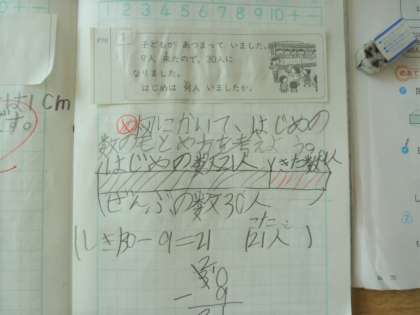 1 2 3 4 5 6 7 8 9 10 + −
1
子どもが あつまって いました。
9人 来たので、30人に
なりました。
はじめは 何人 いましたか。
は1cm
です。
め 図にかいて、はじめの
数のもとめ方を考えよう。
はじめの数21人 きた数9人
ぜんぶの数30人
(しき)30−9=21 こたえ
(21人)
30
− 9
21